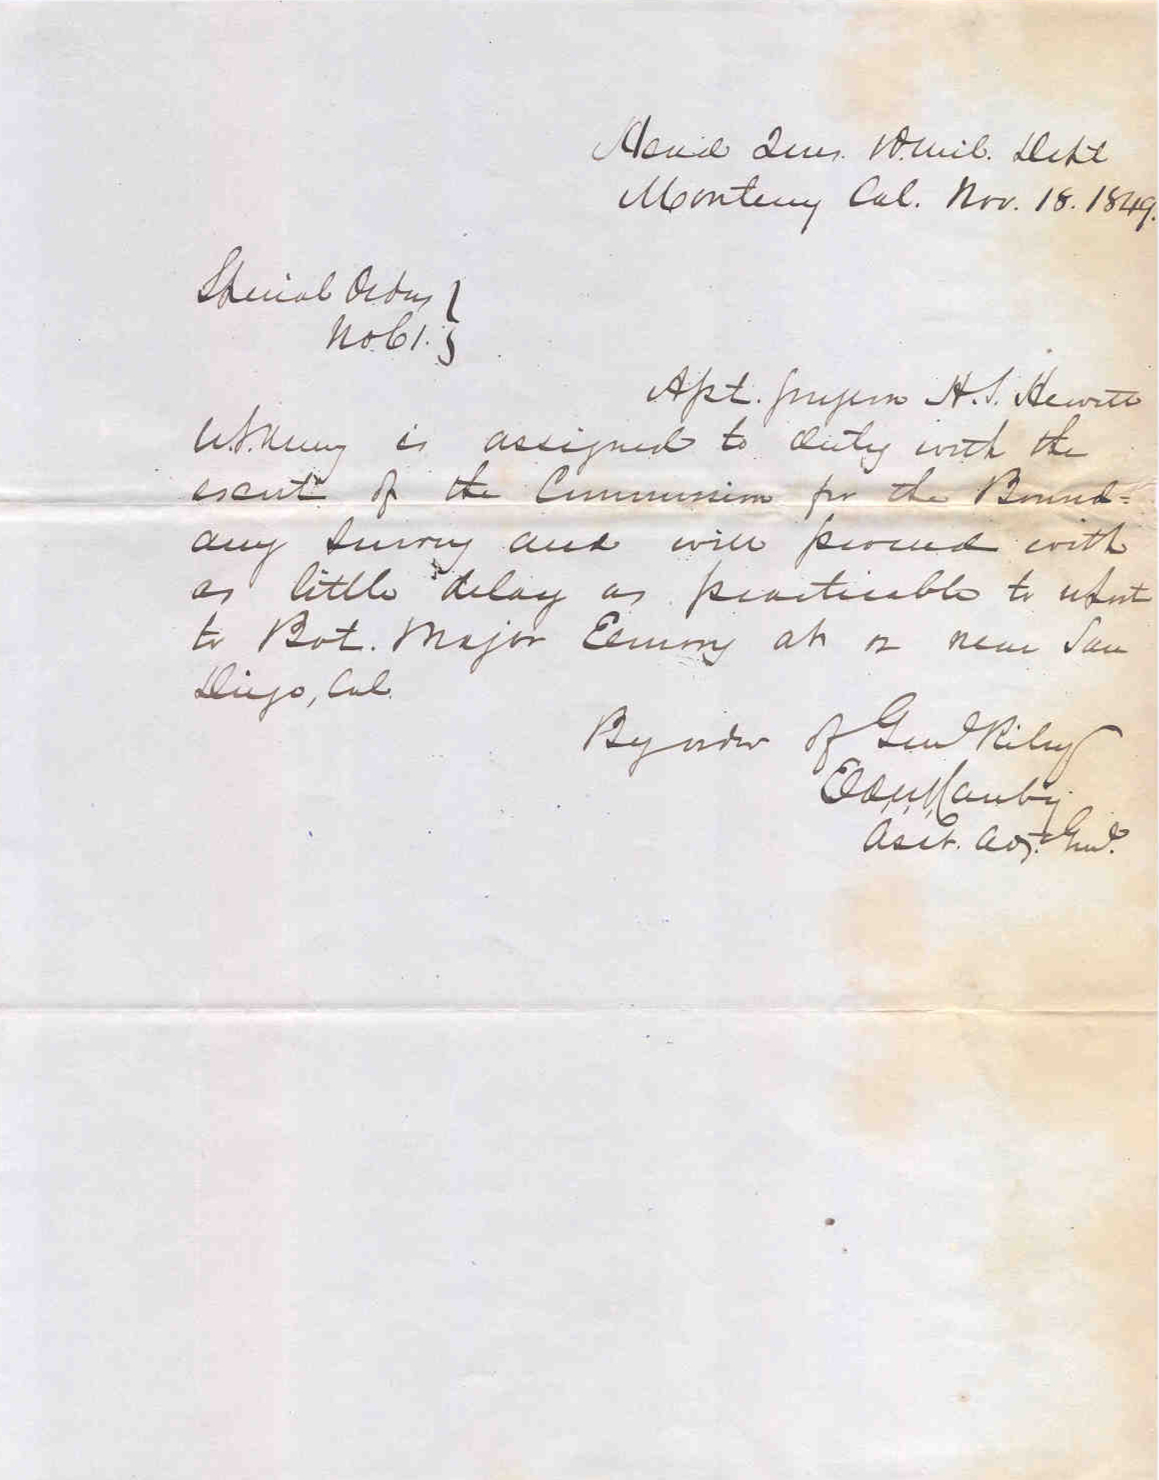 Head Qurs. 10. Mil. Dept
Monterey Cal. Nov. 18. 1849.
Special Orders }
No 61. }
Asst. Surgeon H. S. Hewitt
U.S. Army is assigned to duty with the
escort of the Commission for the Bound=
ary Survey and will proceed with
as little delay as practicable to report
to Bvt. Major Emory at or near San
Diego, Cal.
By order of Genl Riley
Ed. R. S. Canby
Asst. Adj. Genl.